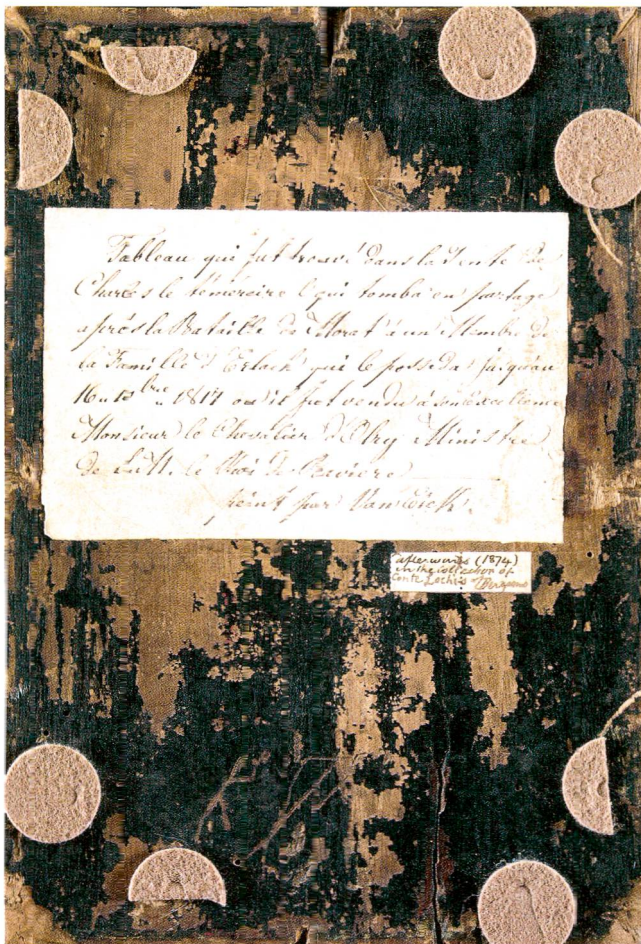 Tableau qui fut trouvé dans la Tente de
Charles le témeraire & qui tomba en partage
après la Bataille de Morat à un Membre de
la Famille d'Erlach qui le posseda jusqu'au
16 1817 où il fut vendu à son Excellence
Monsieur le Chevalier d'Olry Ministre
de S. M. le Roi de Baviere
peint par Van Eick.
afterwards (1874)
in the collection of
Conte Lochis Bergamo